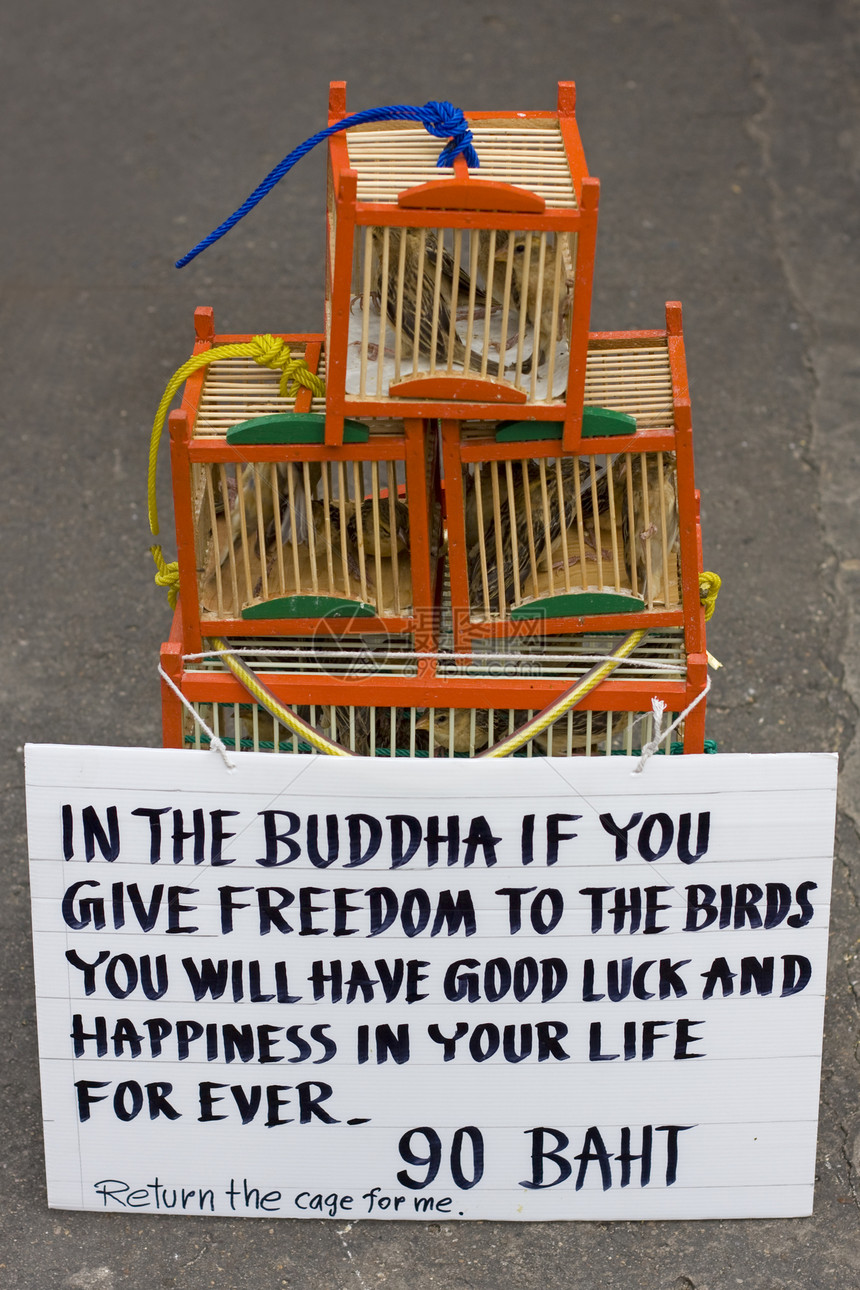 IN THE BUDDHA IF YOU
GIVE FREEDOM TO THE BIRDS
YOU WILL HAVE GOOD LUCK AND
HAPPINESS IN YOUR LIFE
FOR EVER_
90 BAHT
Return the cage for me.
摄图网
699pic.com